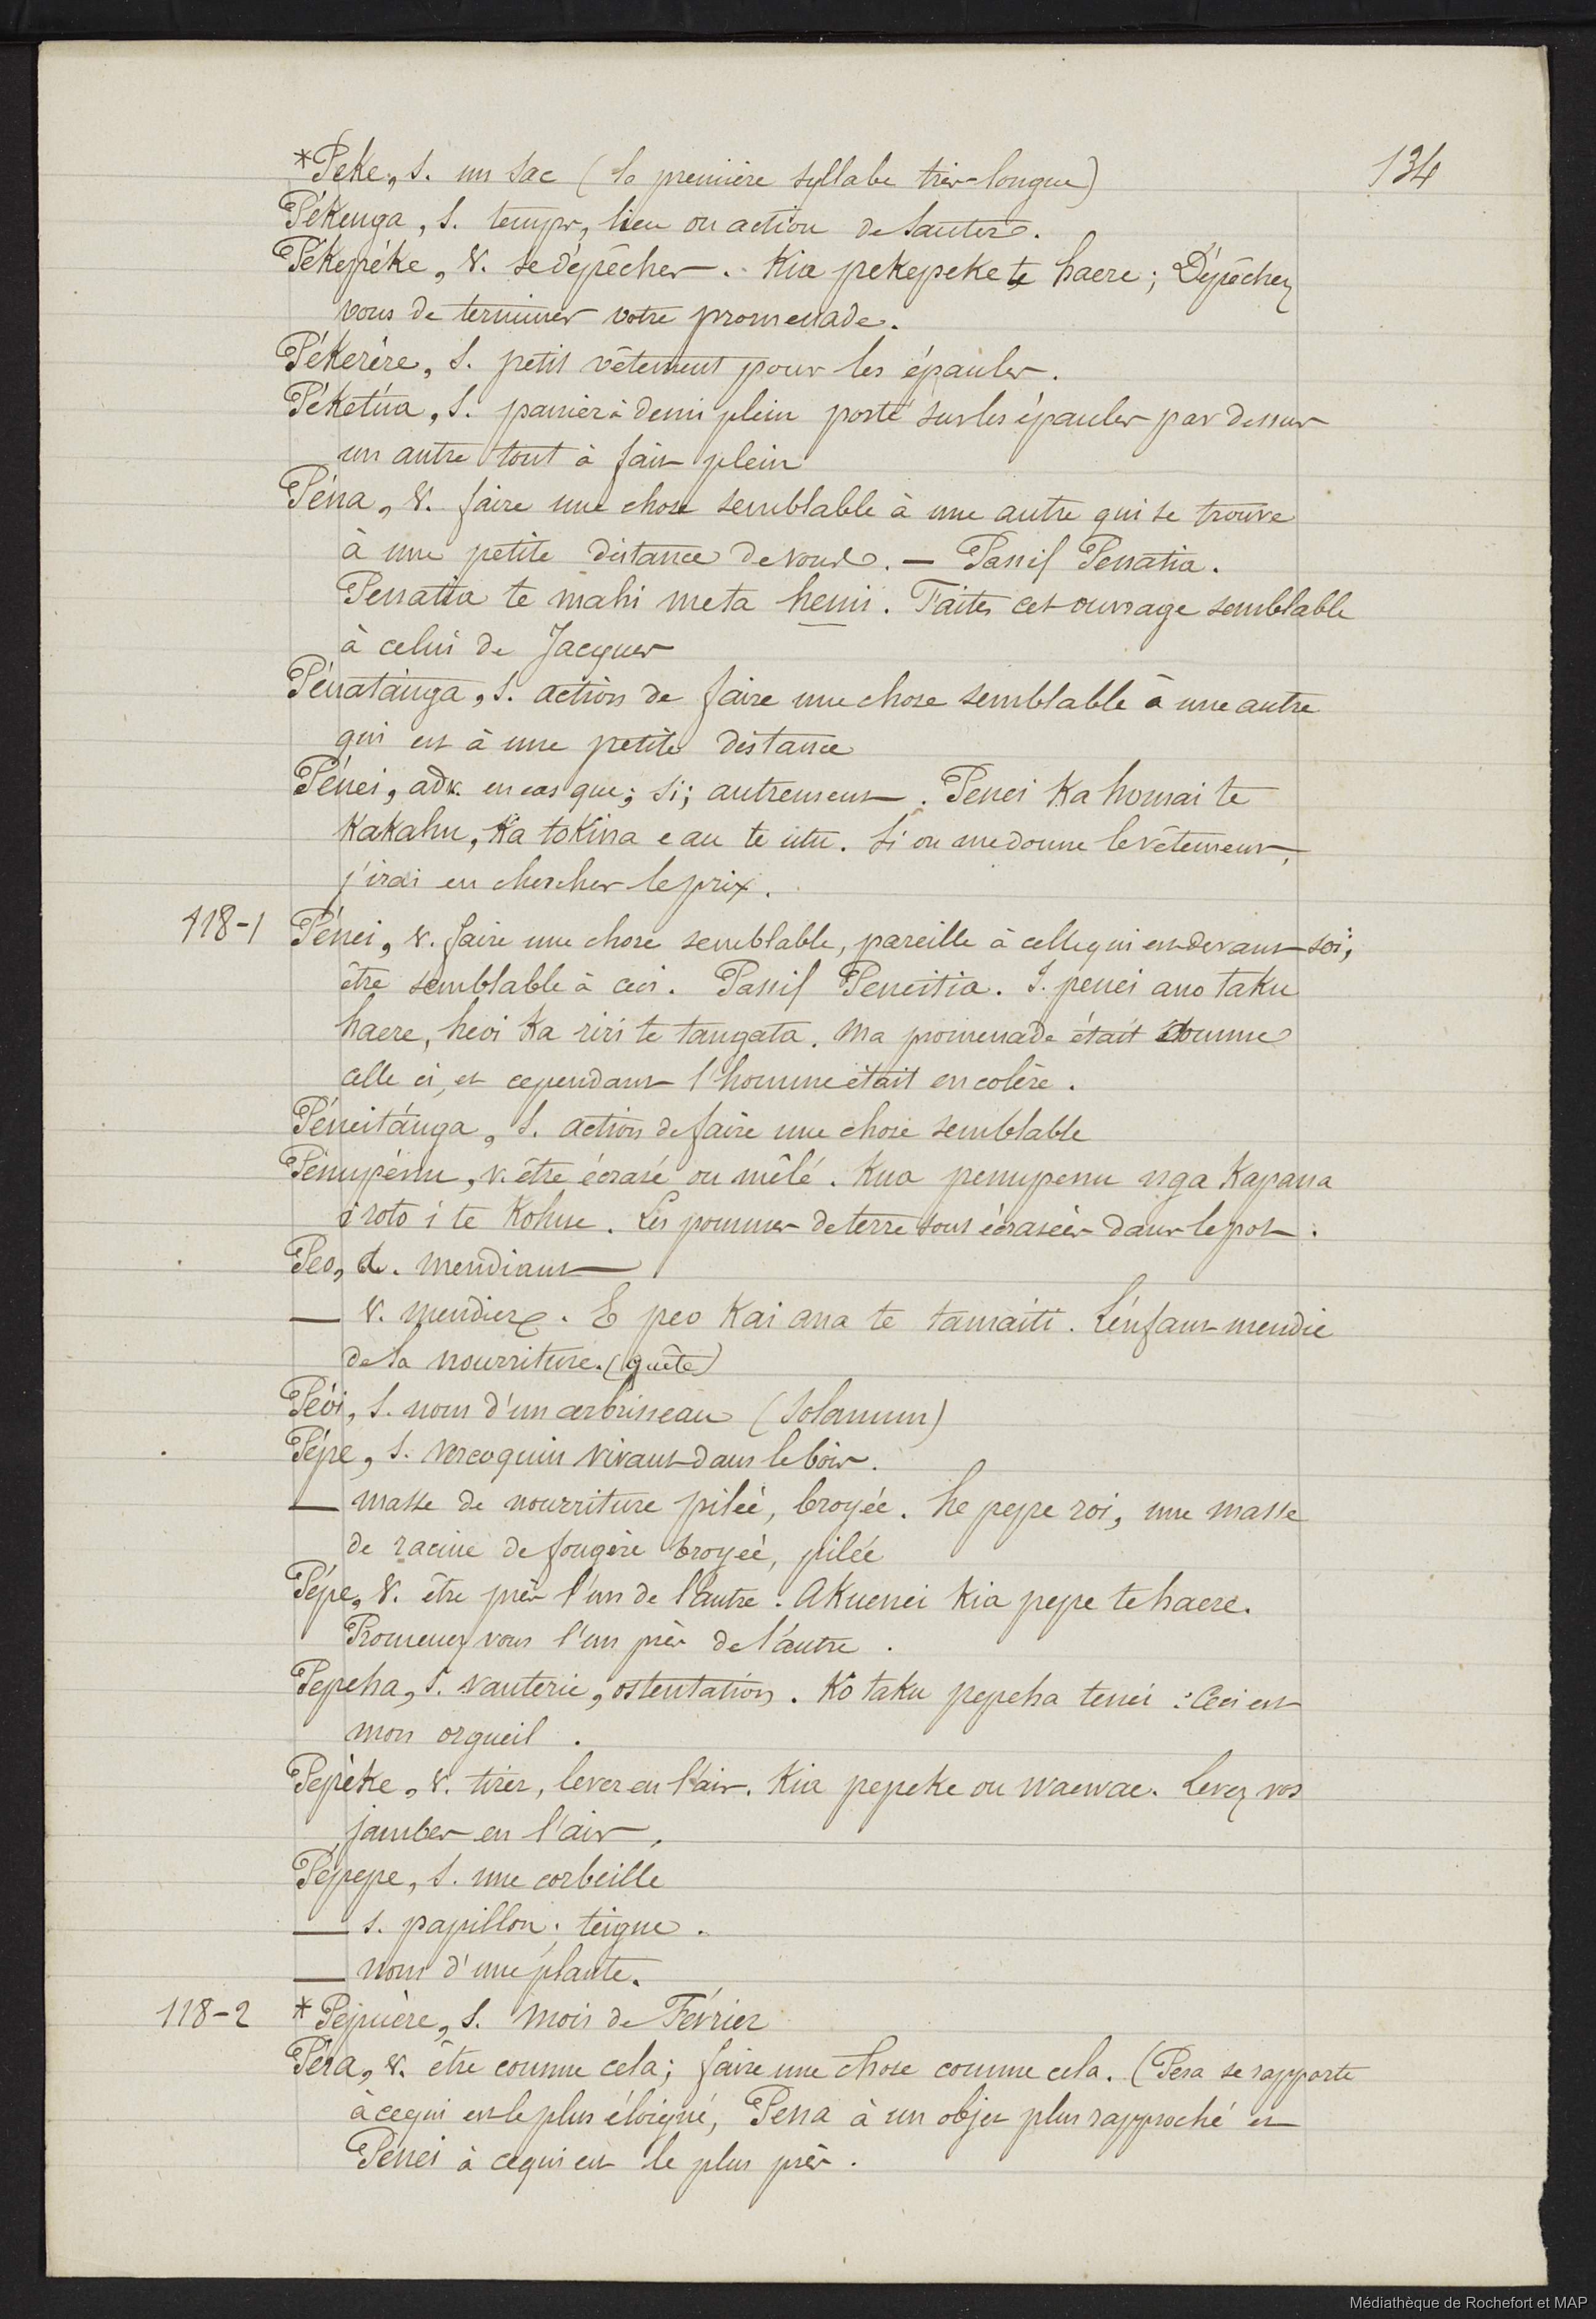 134
*Peke, s. un sac (la première syllabe très-longue)
Pékenga, s. temps, lieu ou action de sauter.
Pékepéke, v. se dépêcher. Kia pekepeke te haere; Dépêchez
vous de terminer votre promenade.
Pékerére, s. petit vêtement pour les épaules.
Péketúa, s. panier à demi plein porté sur les épaules par dessus
un autre tout à fait plein
Péna, v. faire une chose semblable à une autre qui se trouve
à une petite distance de vous. — Passif Penatia.
Penatia te mahi meta hemi. Faites cet ouvrage semblable
à celui de Jacques
Pénatánga, s. action de faire une chose semblable à une autre
qui est à une petite distance
Pénei, adv. en cas que; si; autrement. Penei Ka homai te
Kakahu, Ka tokina e au te utu. Si on me donne le vêtement,
j'irai en chercher le prix.
118-1 Pénei, v. faire une chose semblable, pareille à celle qui est devant soi,
être semblable à ceci. Passif Peneitia. I. penei ano taku
haere, heoi Ka riri te tangata. Ma promenade était comme
celle ci, et cependant l'homme était en colère.
Péneitánga, s. action de faire une chose semblable
Pénupénu, v. être écrasé ou mêlé. Kua penupenu nga Kapana
i roto i te Kohue. Les pommes de terre sont écrasées dans le pot.
Peo, s. mendiant
— v. mendier. E peo Kai ana te tamaiti. L'énfant mendie
de la nourriture. (quête)
Péoi, s. nom d'un arbrisseau (Solanum)
Pépe, s. vercoquin vivant dans le bois.
— masse de nourriture pilée, broyée. he pepe roi, une masse
de racine de fougère broyée, pilée
Pépe, v. être près l'un de l'autre. Akuenei Kia pepe te haere.
Promenez vous l'un près de l'autre.
Pepeha, s. vanterie, ostentation. Ko taku pepeha tenei : Ceci est
mon orgueil.
Pepèke, v. tirer, lever en l'air. Kia pepeke ou waewae. Levez vos
jambes en l'air.
Pépepe, s. une corbeille
— s. papillon; teigne.
— nom d'une plante.
118-2 *Pepuère, s. Mois de Février
Péra, v. être comme cela; faire une chose comme cela. (Pera se rapporte
à ce qui est le plus éloigné, Pena à un objet plus rapproché et
Penei à ce qui est le plus près.
Médiathèque de Rochefort et MAP